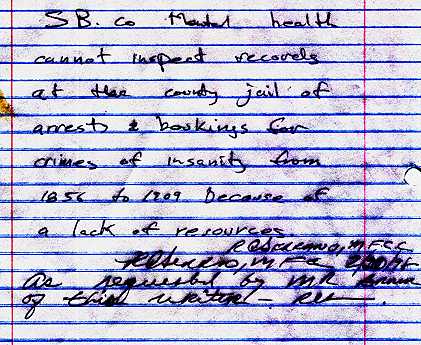 SB. co Mental health
cannot inspect records
at the county jail of
arrests & bookings for
crimes of insanity from
1856 to 1909 Because of
a lack of resources
MFCC
MFCC
As requested by MR
of this writer -